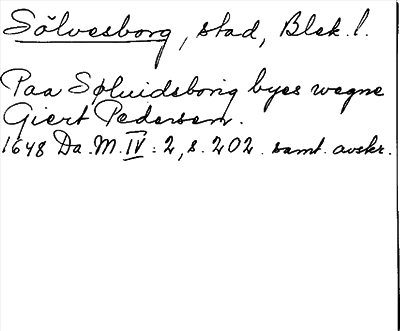 Sölvesborg, stad, Blek. l.
Paa Søluidsborig byes wegne
Giert Pedersen.
1648 Da. M. IV: 2, s. 202. samt. avskr.